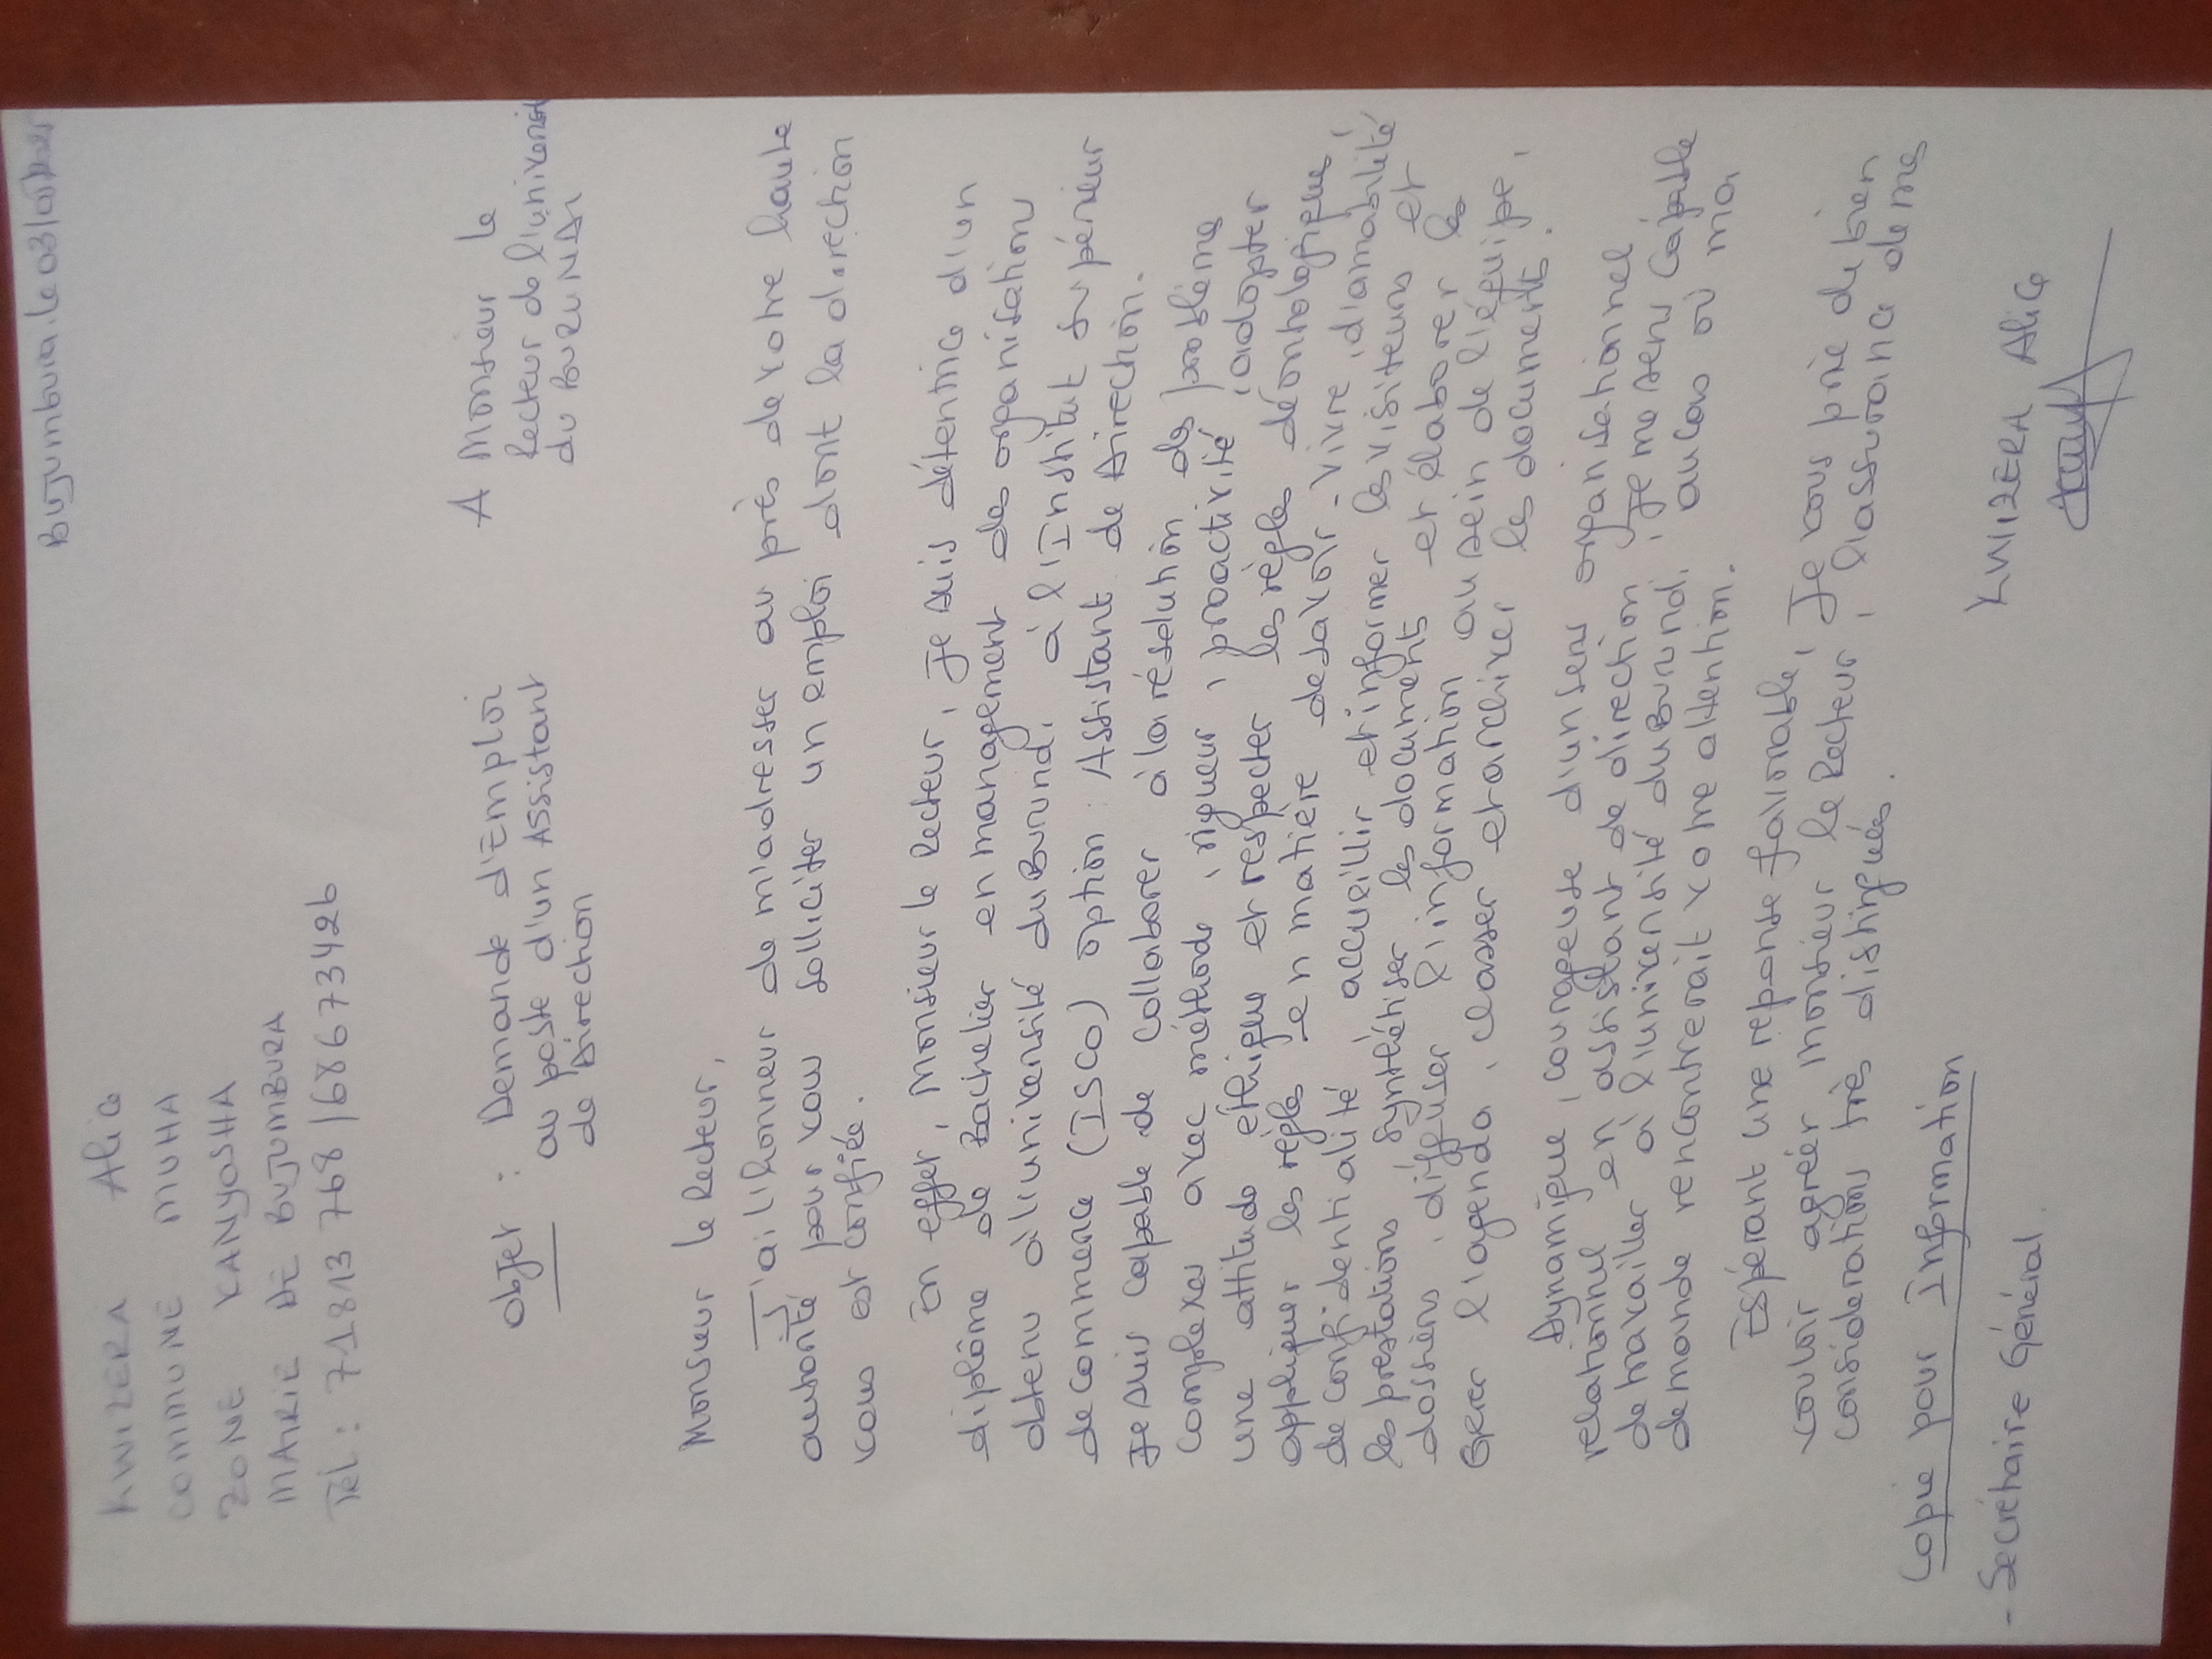 Bujumbura, le 03/
KWIZERA Alice
COMMUNE MUHA
ZONE KANYOSHA
MAIRIE DE BUJUMBURA
Tél : 71813768/68673426
A Monsieur le
Recteur de l'université
du BURUNDI
Objet : Demande d'Emploi
au poste d'un Assistant
de Direction
Monsieur le Recteur,
J'ai l'honneur de m'adresser au près de votre haute
autorité pour vous solliciter un emploi dont la direction
vous est confiée.
En effet, Monsieur le Recteur, Je suis détentrice d'un
diplôme de Bachelier en management des organisations
obtenu à l'université du Burundi, à l'Institut supérieur
de commerce (ISCO) option : Assistant de Direction.
Je suis capable de collaborer à la résolution des problème
complexes avec méthode, rigueur, proactivité, adopter
une attitude éthique et respecter les règles déontologiques,
appliquer les règles en matière de savoir-vivre, d'amabilité
de confidentialité accueillir et informer les visiteurs et
les prestations synthétiser les documents et élaborer les
dossiers, diffuser l'information au sein de l'équipe,
Gérer l'agenda, classer et archiver les documents.
Dynamique, courageuse d'un sens organisationnel
relationnel en assistant de direction, je me sens capable
de travailler à l'université du Burundi, au cas où ma
demande rencontrerait votre attention.
Espérant une reponse favorable, Je vous prie de bien
vouloir agréer Monsieur le Recteur, l'assurance de mes
considerations très distinguées.
KWIZERA Alice
Copie pour Information
- Secrétaire Général.